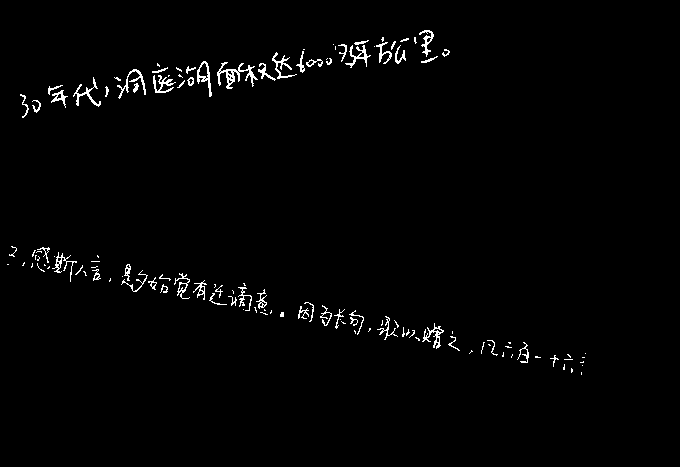 30年代，洞庭湖面积达6000多平方公里。
，感斯人言，是夕始觉有迁谪意。因为长句，歌以赠之，凡六百一十六